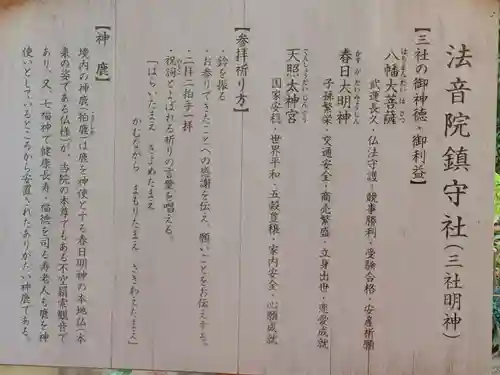 法音院鎮守社（三社明神）
【三社の御神徳・御利益】
八幡大菩薩
武運長久・仏法守護・競事勝利・受験合格・安産祈願
春日大明神
子孫繁栄・交通安全・商売繁盛・立身出世・恋愛成就
天照太神宮
国家安穏・世界平和・五穀豊穣・家内安全・心願成就
【参拝祈り方】
・鈴を振る
・お参りできたことへの感謝を伝え、願いごとをお伝えする。
・二拝二拍手一拝
・祝詞とよばれる祈りの言葉を唱える。
「はらいたまえ きよめたまえ
かむながら まもりたまえ さきわえたまえ」
【神鹿】
境内の神鹿（狛鹿）は鹿を神使とする春日明神の本地仏（本
来の姿である仏様）が、当院の本尊でもある不空羂索観音で
あり、又、七福神で健康長寿・福徳を司る寿老人も鹿を神
使いとしているところから安置されたありがたい神鹿である。